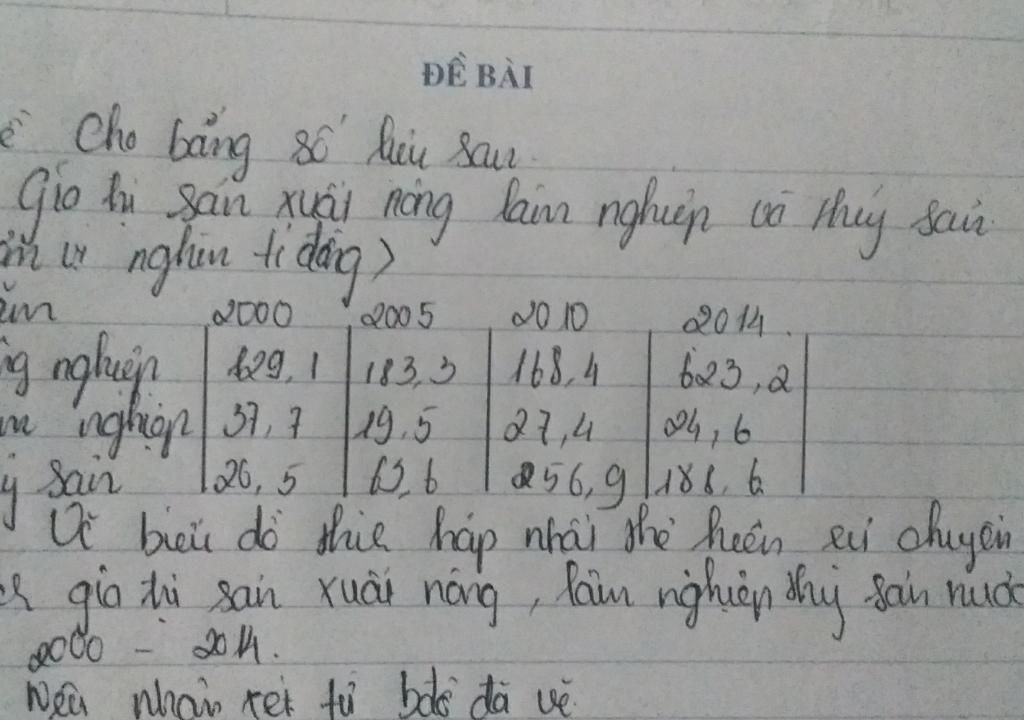 ĐỀ BÀI
Cho bảng số liệu sau.
Gía trị sản xuất nông lâm nghiệp và thủy sản
vị nghìn tỉ đồng)
2000 2005 2010 2014.
nghiệp 629,1 183,3 168,4 623,2
nghiệp 37,7 19,5 27,4 24,6
sản 26,5 63,6 256,9 188,6
Vẽ biểu đồ thích hợp nhất thể hiện sự chuyển
giá trị sản xuất nông, lâm nghiệp thủy sản nước
2000 - 2014.
Nêu nhận xét từ bđồ đã vẽ